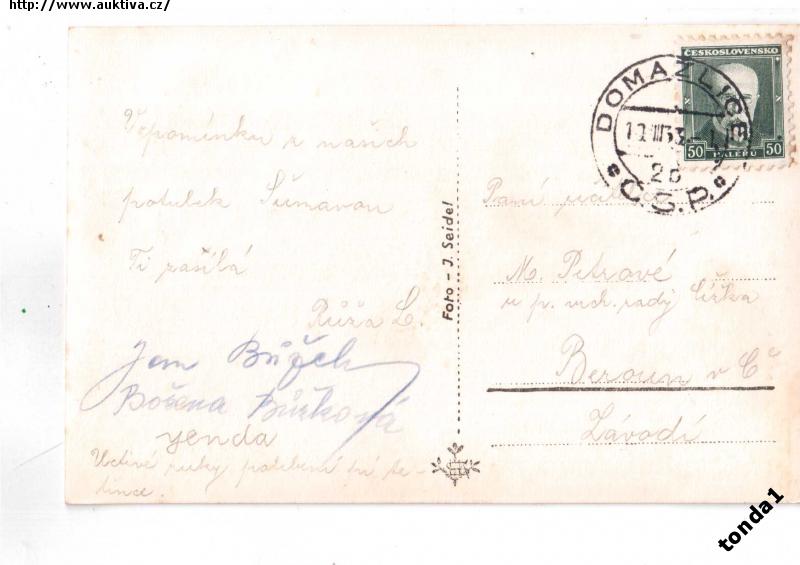 http://www.auktiva.cz/
Vzpomínku z našich
potulek Šumavou
Ti zasílá
Růža L.
Jan Bůžek
Božena Bůžková
yenda
Uctivé ruky políbení sl. te-
tince.
Foto – J. Seidel
ČESKOSLOVENSKO
50 HALÉŘŮ 50
DOMAŽLICE
2b
Č.S.P.
Paní
M. Petrové
u p. vrch. rady Čížka
Beroun v Č.
Závodí
tonda1